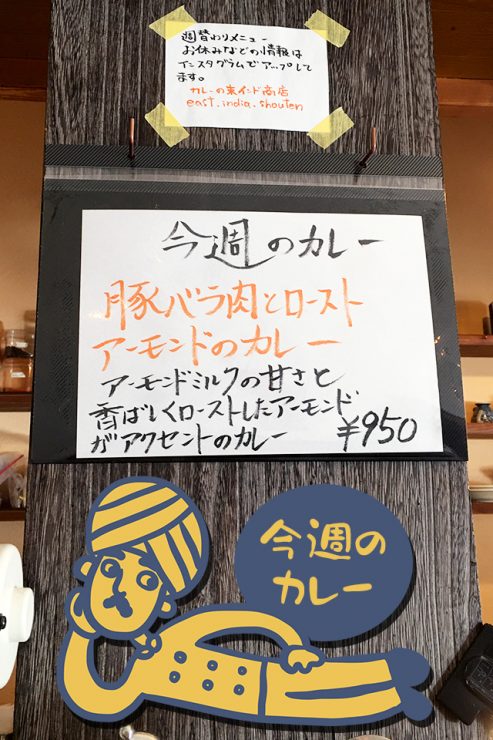 週替わりメニュー
お休みなどの情報は
インスタグラムでアップして
ます。
カレーの東インド商店
east.india.shouten
今週のカレー
豚バラ肉とロースト
アーモンドのカレー
アーモンドミルクの甘さと
香ばしくローストしたアーモンド
がアクセントのカレー ¥950
今週の
カレー